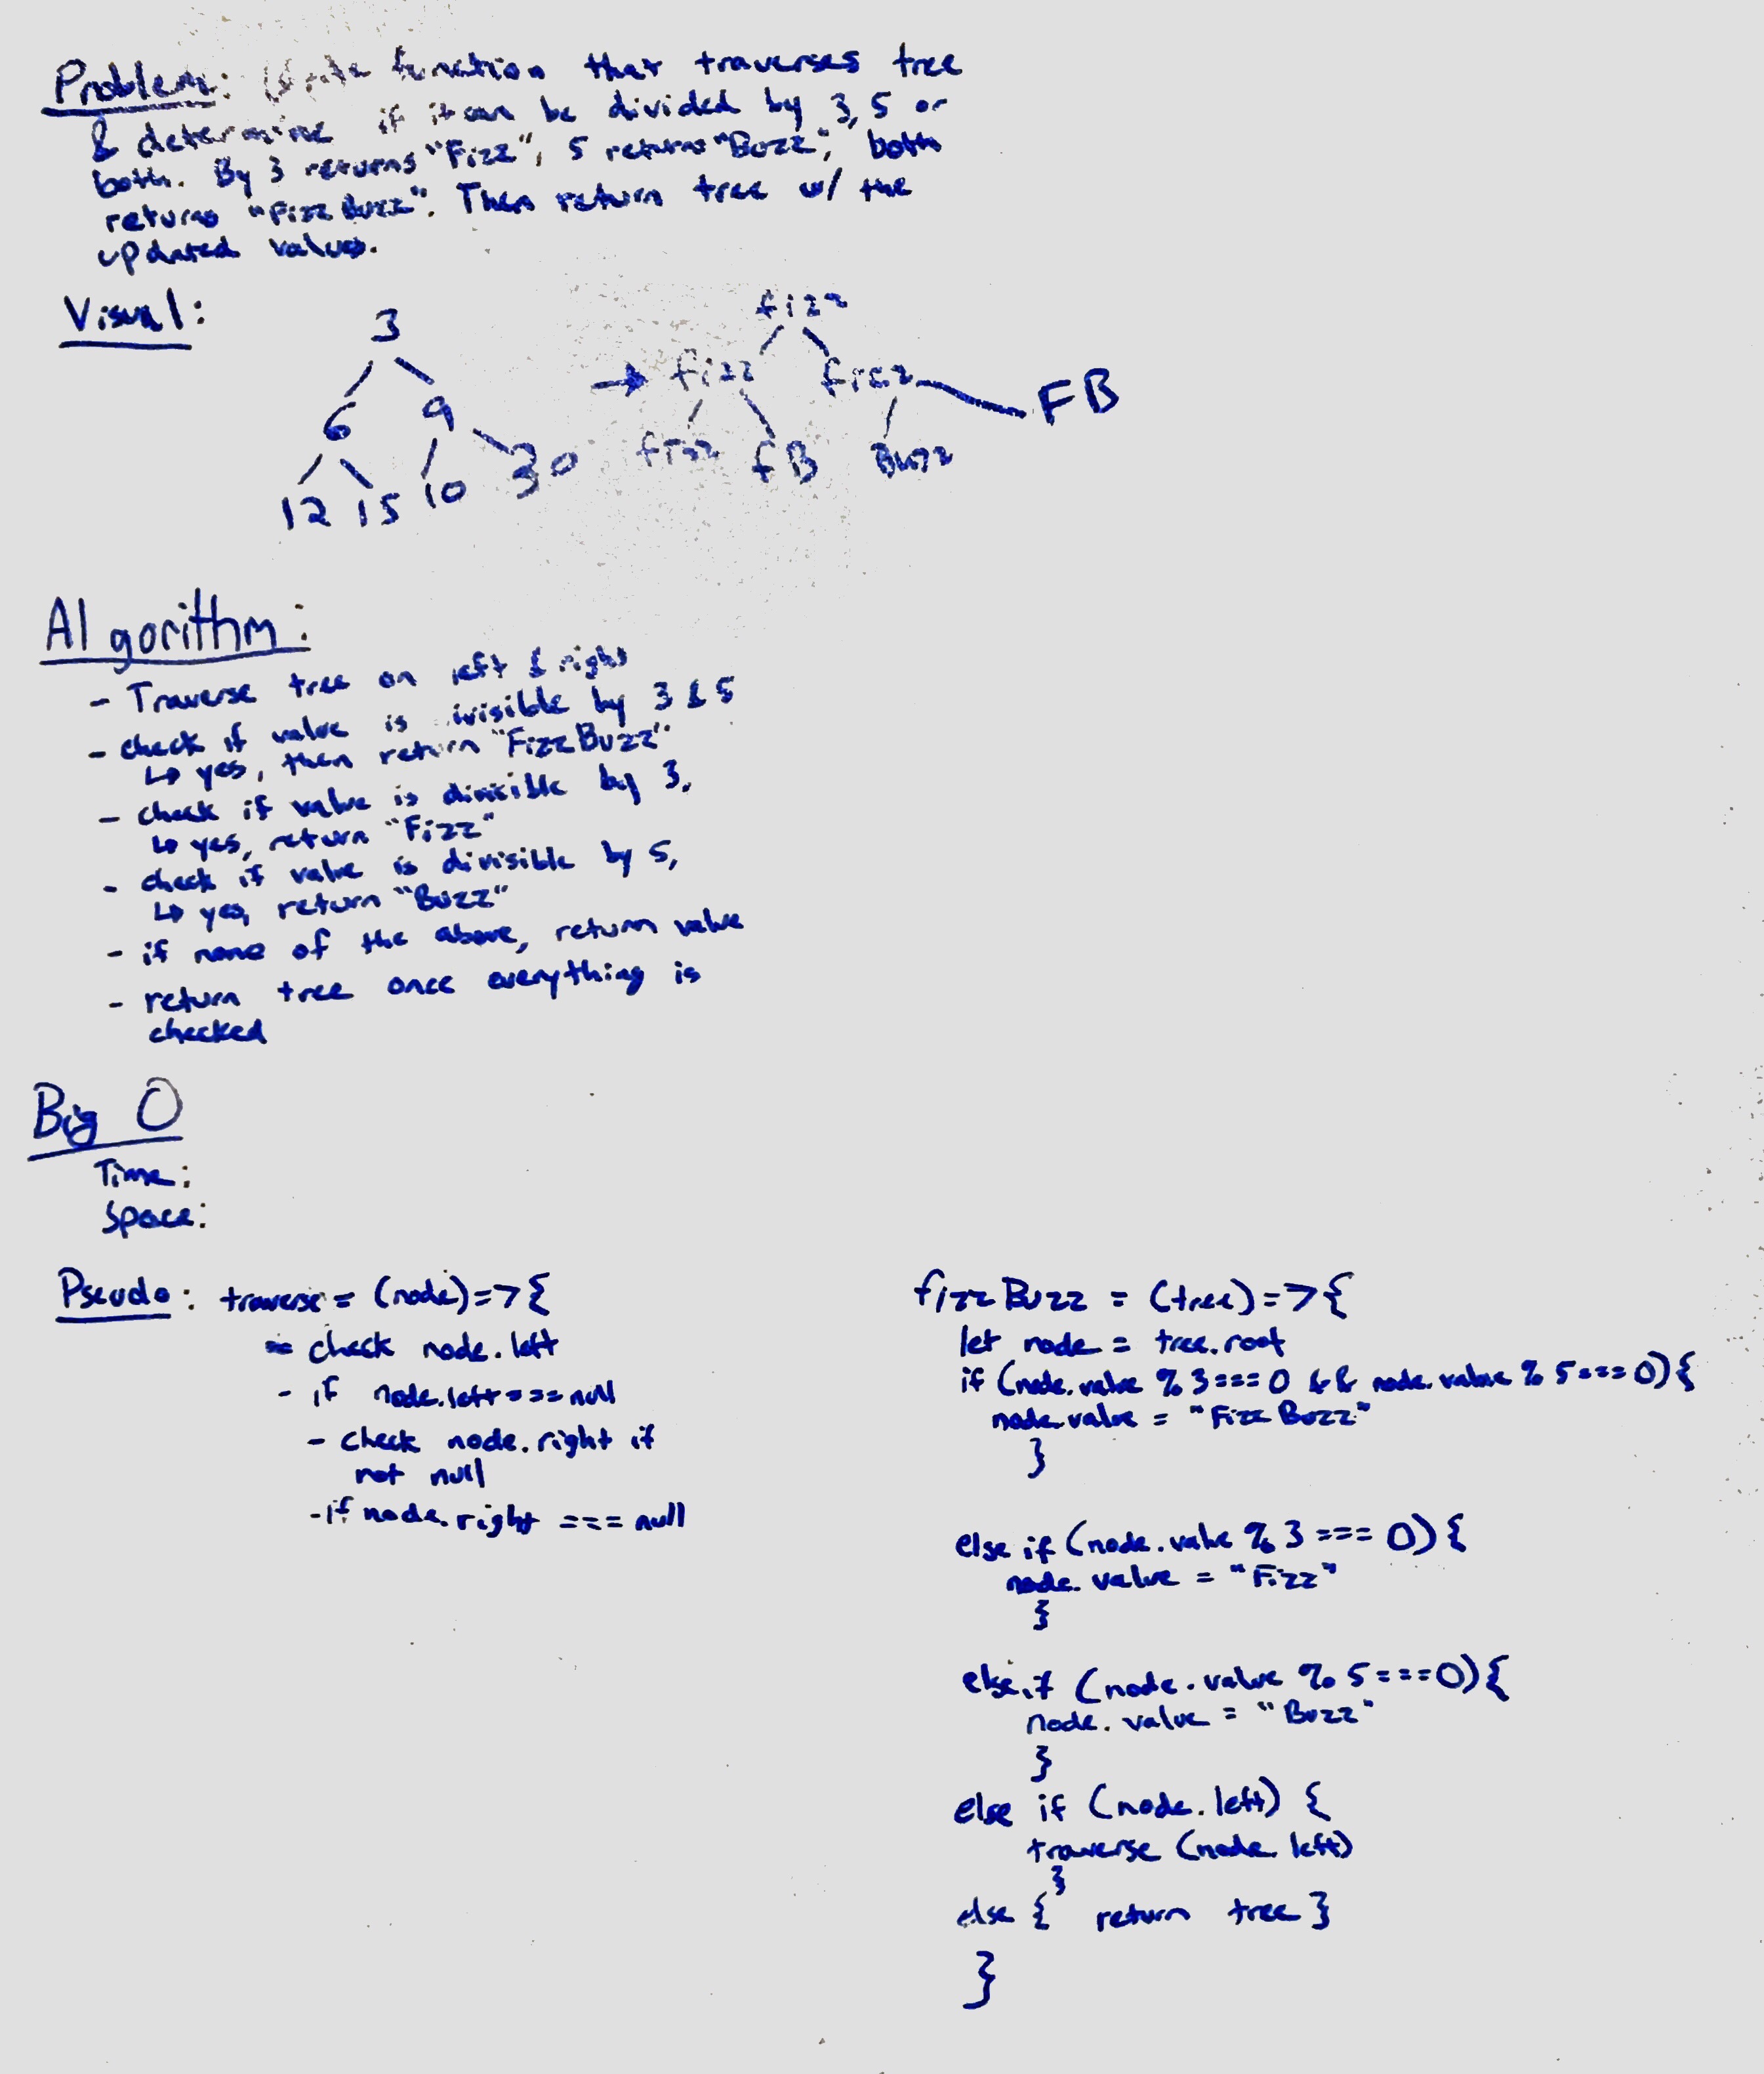 Problem: Write function that traverses tree
& determine if it can be divided by 3, 5 or
both. By 3 returns "Fizz", 5 returns "Buzz", both
returns "FizzBuzz". Then return tree w/ the
updated values.
Visual:
3
6 9
12 15 10 30
→
fizz
fizz fizz
FB
fizz fB Buzz
Algorithm:
- Traverse tree on left & right
- check if value is ivisible by 3 & 5
↳ yes, then return "FizzBuzz"
- check if value is divisible by 3,
↳ yes, return "Fizz"
- check if value is divisible by 5,
↳ yes, return "Buzz"
- if none of the above, return value
- return tree once everything is
checked
Big O
Time:
Space:
Pseudo: traverse = (node)=>{
- check node.left
- if node.left===null
- check node.right if
not null
- if node.right === null
fizzBuzz = (tree)=>{
let node = tree.root
if (node.value % 3===0 && node.value % 5===0){
node.value = "FizzBuzz"
}
else if (node.value % 3 === 0){
node.value = "Fizz"
}
else if (node.value % 5===0){
node.value = "Buzz"
}
else if (node.left) {
traverse (node.left)
}
else { return tree }
}